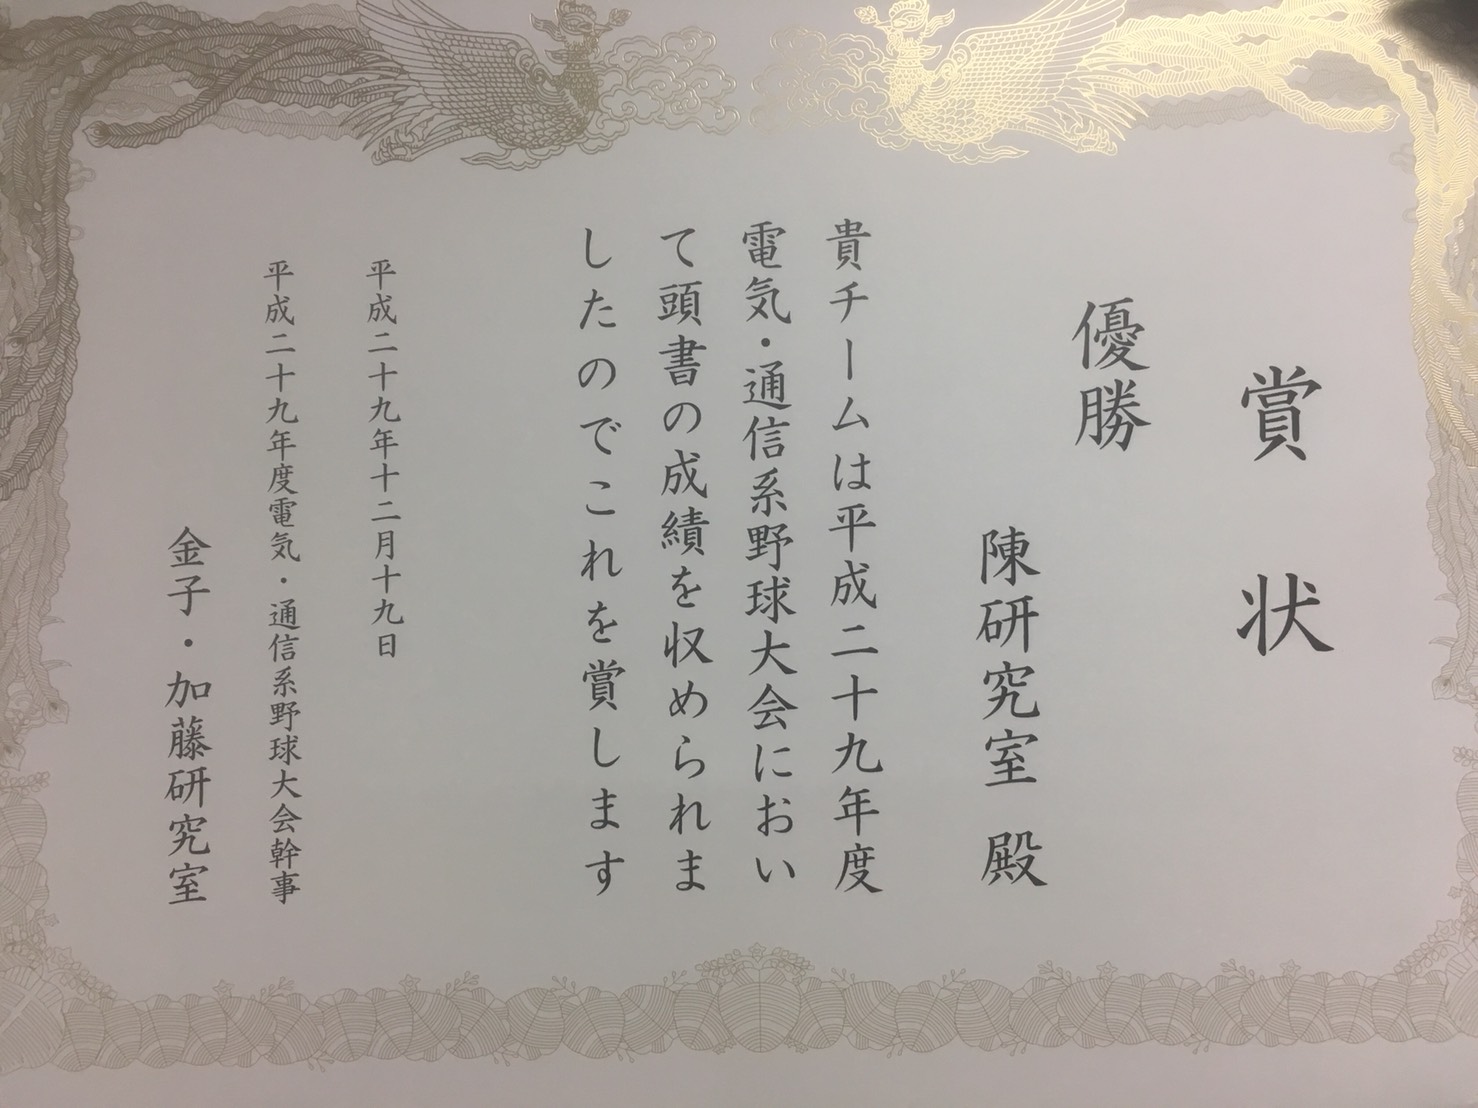 賞状
優勝
陳研究室 殿
貴チームは平成二十九年度
電気・通信系野球大会におい
て頭書の成績を収められま
したのでこれを賞します
平成二十九年十二月十九日
平成二十九年度電気・通信系野球大会幹事
金子・加藤研究室